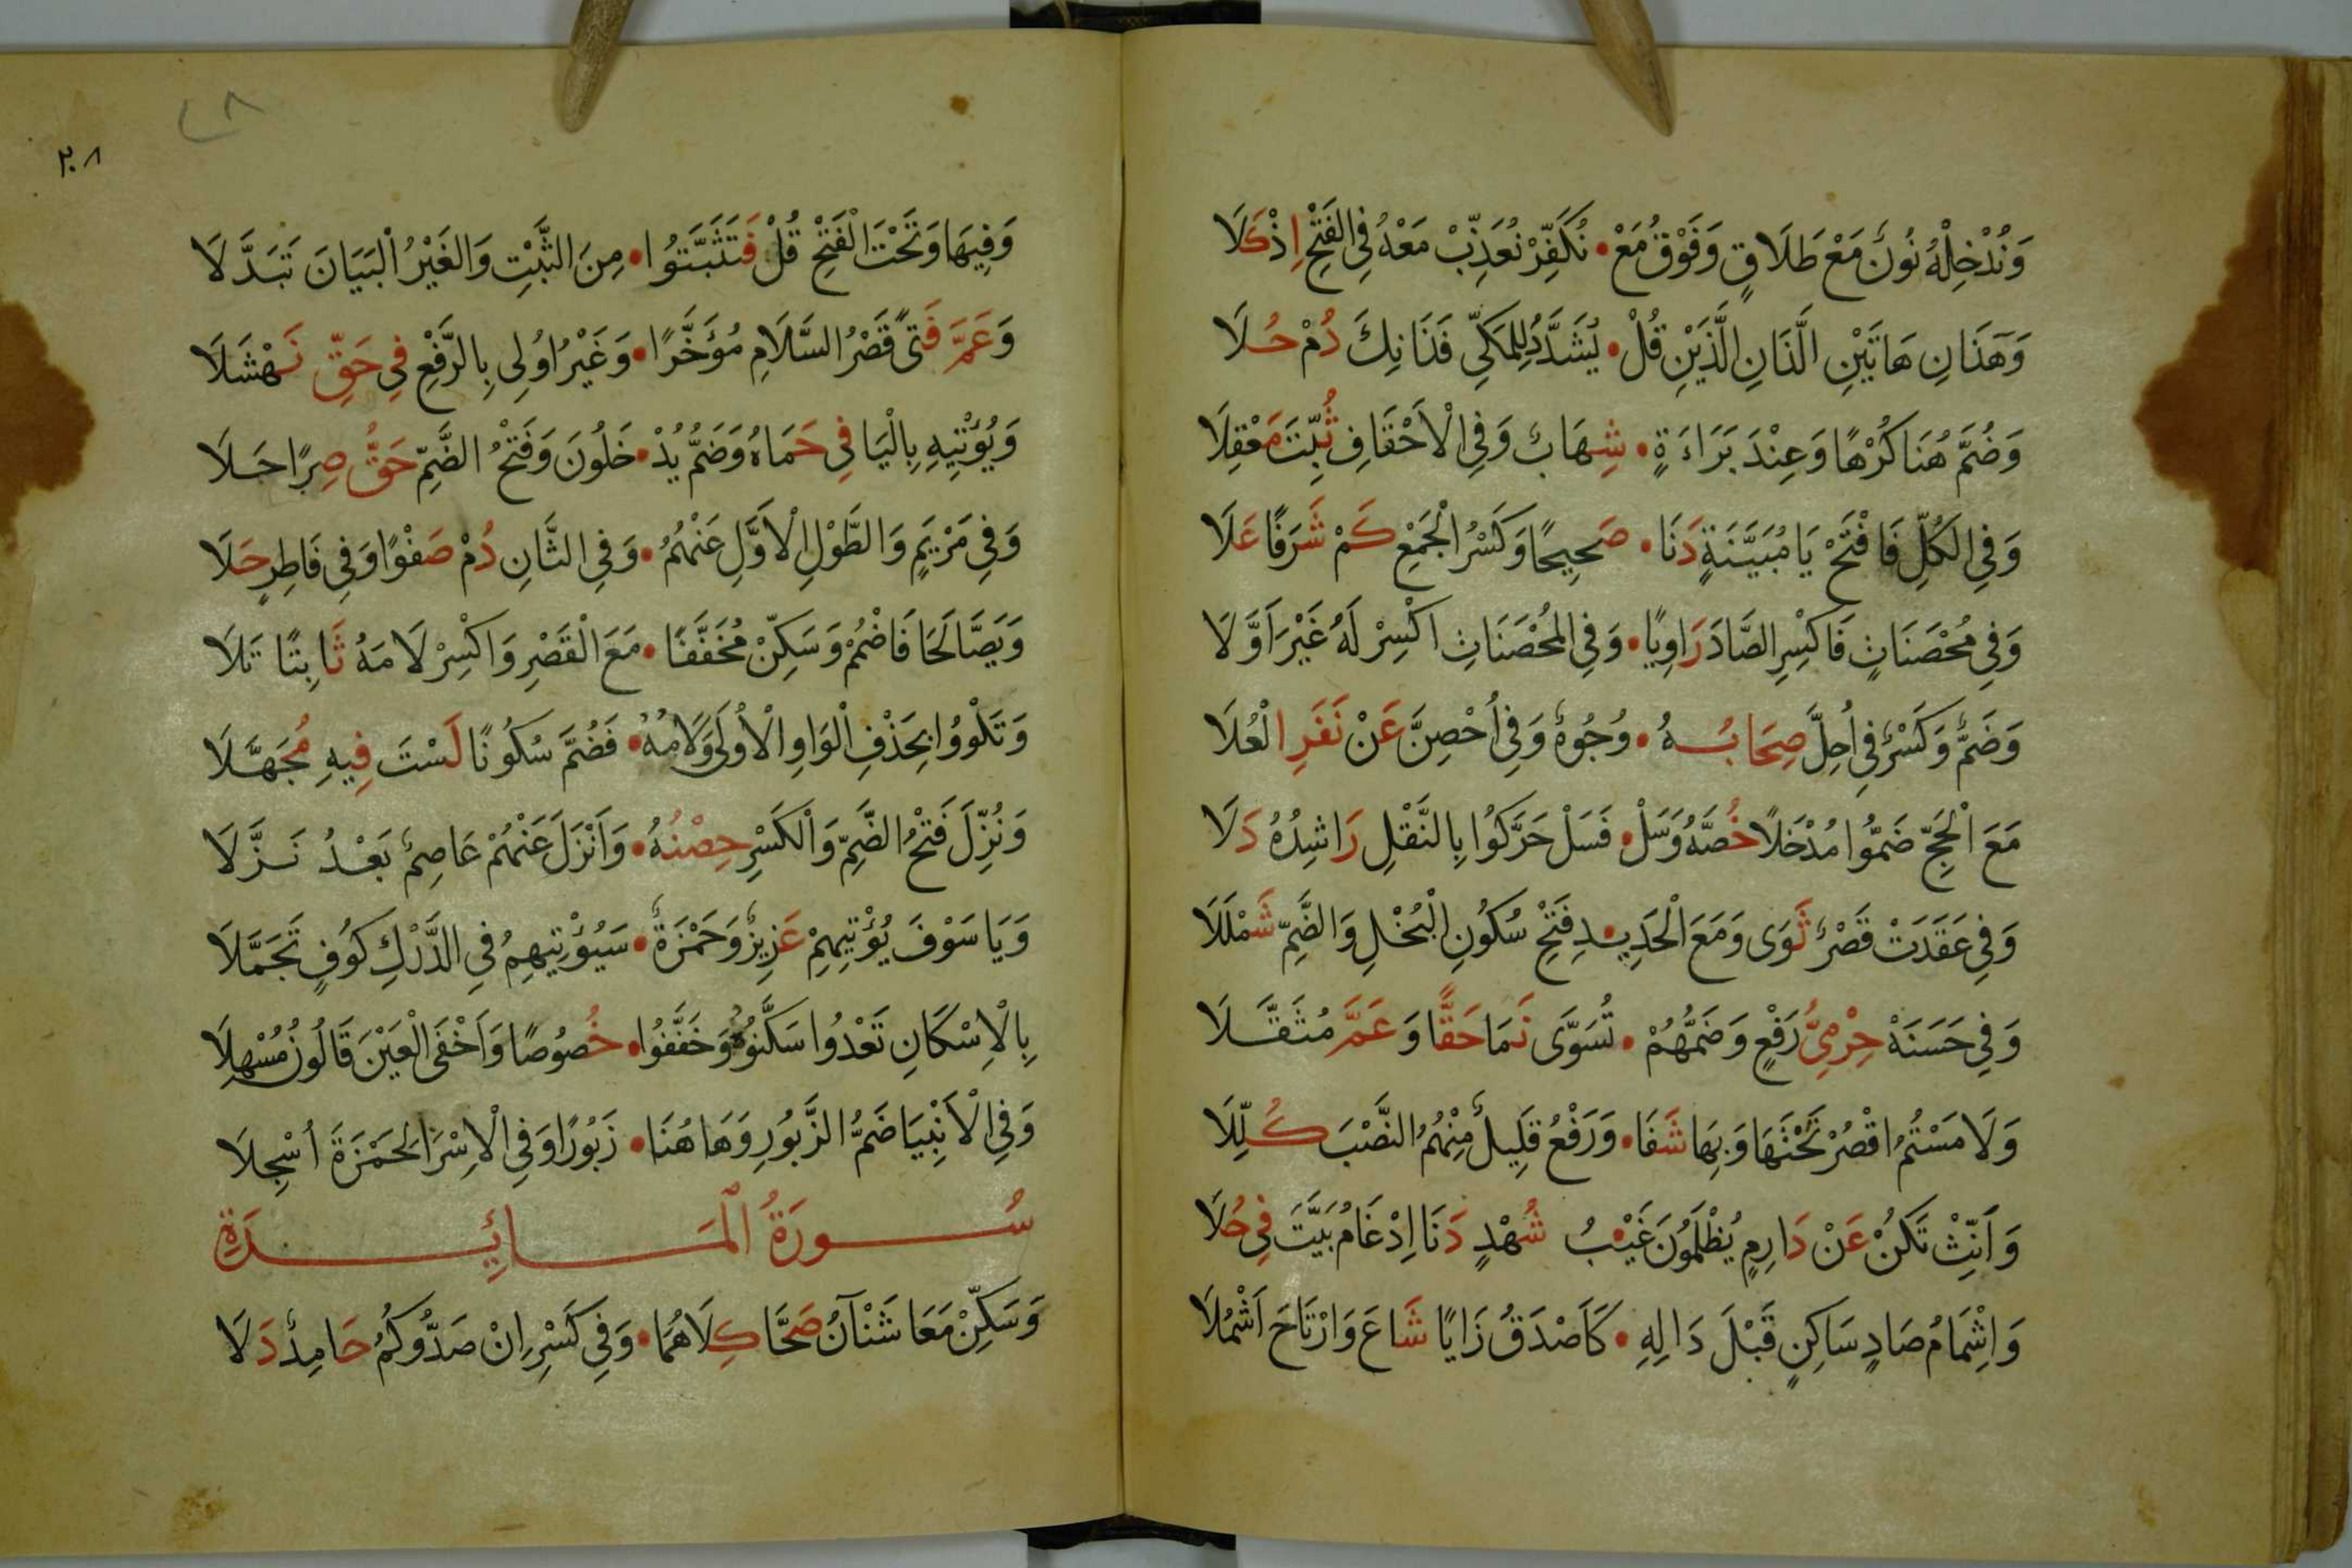 وَنُدْخِلْهُ نُونٌ مَعْ طَلَاقٍ وَفَوْقُ مَعْ • نُكَفِّرْ نُعَذِّبْ مَعْهُ فِي الْفَتْحِ اِذْ كَلَا
وَهَذَانِ هَاتَيْنِ الَّذَانِ الَّذَيْنِ قُلْ • يُشَدَّدُ لِلْمَكِّي فَذَانِكَ دُمْ حُلَا
وَضُمَّ هُنَا كُرْهًا وَعِنْدَ بَرَاءَةٍ • شِهَابٌ وَفِي الْاَحْقَافِ ثُبِّتَ مَعْقِلَا
وَفِي الْكُلِّ فَافْتَحْ يَا مُبَيَّنَةٍ دَنَا • صَحِيحًا وَكَسْرُ الْجَمْعِ كَمْ شَرَفًا عَلَا
وَفِي مُحْصَنَاتٍ فَاكْسِرِ الصَّادَ رَاوِيًا • وَفِي الْمُحْصَنَاتِ اكْسِرْ لَهُ غَيْرَ اَوَّلَا
وَضَمٌّ وَكَسْرٌ فِي اُحِلَّ صِحَابُهُ • وُجُوهٌ وَفِي اُحْصِنَّ عَنْ نَفَرِ الْعُلَا
مَعَ الْحَجِّ ضَمُّوا مُدْخَلًا خُصَّهُ وَسَلْ • فَسَلْ حَرَّكُوا بِالنَّقْلِ رَاشِدُهُ دَلَا
وَفِي عَقَدَتْ قَصْرٌ ثَوَى وَمَعَ الْحَدِيدِ فَتْحِ سُكُونِ الْبُخْلِ وَالضَّمِّ شَمْلَلَا
وَفِي حَسَنَهْ حِرْمِيُّ رَفْعٍ وَضَمُّهُمْ • تُسَوَّى نَمَا حَقًّا وَعَمَّ مُثَقَّلَا
وَلَا مَسْتُمُ اقْصُرْ تَحْتَهَا وَبِهَا شَفَا • وَرَفْعُ قَلِيلٌ مِنْهُمُ النَّصْبَ كُلِّلَا
وَاَنِّثْ تَكُنْ عَنْ دَارِمٍ يُظْلَمُونَ غَيْبُ شُهْدٍ دَنَا اِدْغَامُ بَيَّتَ فِي حُلَا
وَاِشْمَامُ صَادٍ سَاكِنٍ قَبْلَ دَالِهِ • كَاَصْدَقُ زَايًا شَاعَ وَارْتَاحَ اَشْمُلَا
٢٠٨
٢٨
وَفِيهَا وَتَحْتَ الْفَتْحِ قُلْ فَتَثَبَّتُوا • مِنَ الثَّبْتِ وَالْغَيْرُ الْبَيَانَ تَبَدَّلَا
وَعَمَّ فَتًى قَصْرُ السَّلَامِ مُؤَخَّرًا • وَغَيْرُ اُولِي بِالرَّفْعِ فِي حَقِّ نَهْشَلَا
وَيُؤْتِيهِ بِالْيَا فِي حَمَاهُ وَضَمُّ يُدْ • خَلُونَ وَفَتْحُ الضَّمِّ حَقٌّ صِرًا حَلَا
وَفِي مَرْيَمٍ وَالطَّوْلِ الْاَوَّلِ عَنْهُمُ • وَفِي الثَّانِ دُمْ صَفْوًا وَفِي فَاطِرٍ حَلَا
وَيَصَّالَحَا فَاضْمُمْ وَسَكِّنْ مُخَفَّفًا • مَعَ الْقَصْرِ وَاكْسِرْ لَامَهُ ثَابِتًا تَلَا
وَتَلْوُوا بِحَذْفِ الْوَاوِ الْاُولَى وَلَامُهُ • فَضُمَّ سُكُونًا لَسْتَ فِيهِ مُجَهَّلَا
وَنُزِّلَ فَتْحُ الضَّمِّ وَالْكَسْرِ حِصْنُهُ • وَاَنْزَلَ عَنْهُمْ عَاصِمٌ بَعْدُ نَزَّلَا
وَيَا سَوْفَ يُؤْتِيهِمْ عَزِيزٌ وَحَمْزَةٌ • سَيُؤْتِيهِمُ فِي الدَّرْكِ كُوفٍ تَجَمَّلَا
بِالْاِسْكَانِ تَعْدُوا سَكَّنُوهُ وَخَفَّفُوا • خُصُوصًا وَاَخْفَى الْعَيْنَ قَالُونُ مُسْهِلَا
وَفِي الْاَنْبِيَا ضَمُّ الزَّبُورِ وَهَاهُنَا • زَبُورًا وَفِي الْاِسْرَا لِحَمْزَةَ اُسْجِلَا
سُورَةُ الْمَائِدَةِ
وَسَكِّنْ مَعًا شَنْآنُ صَحَّا كِلَاهُمَا • وَفِي كَسْرِ اِنْ صَدُّوكُمُ حَامِدٌ دَلَا